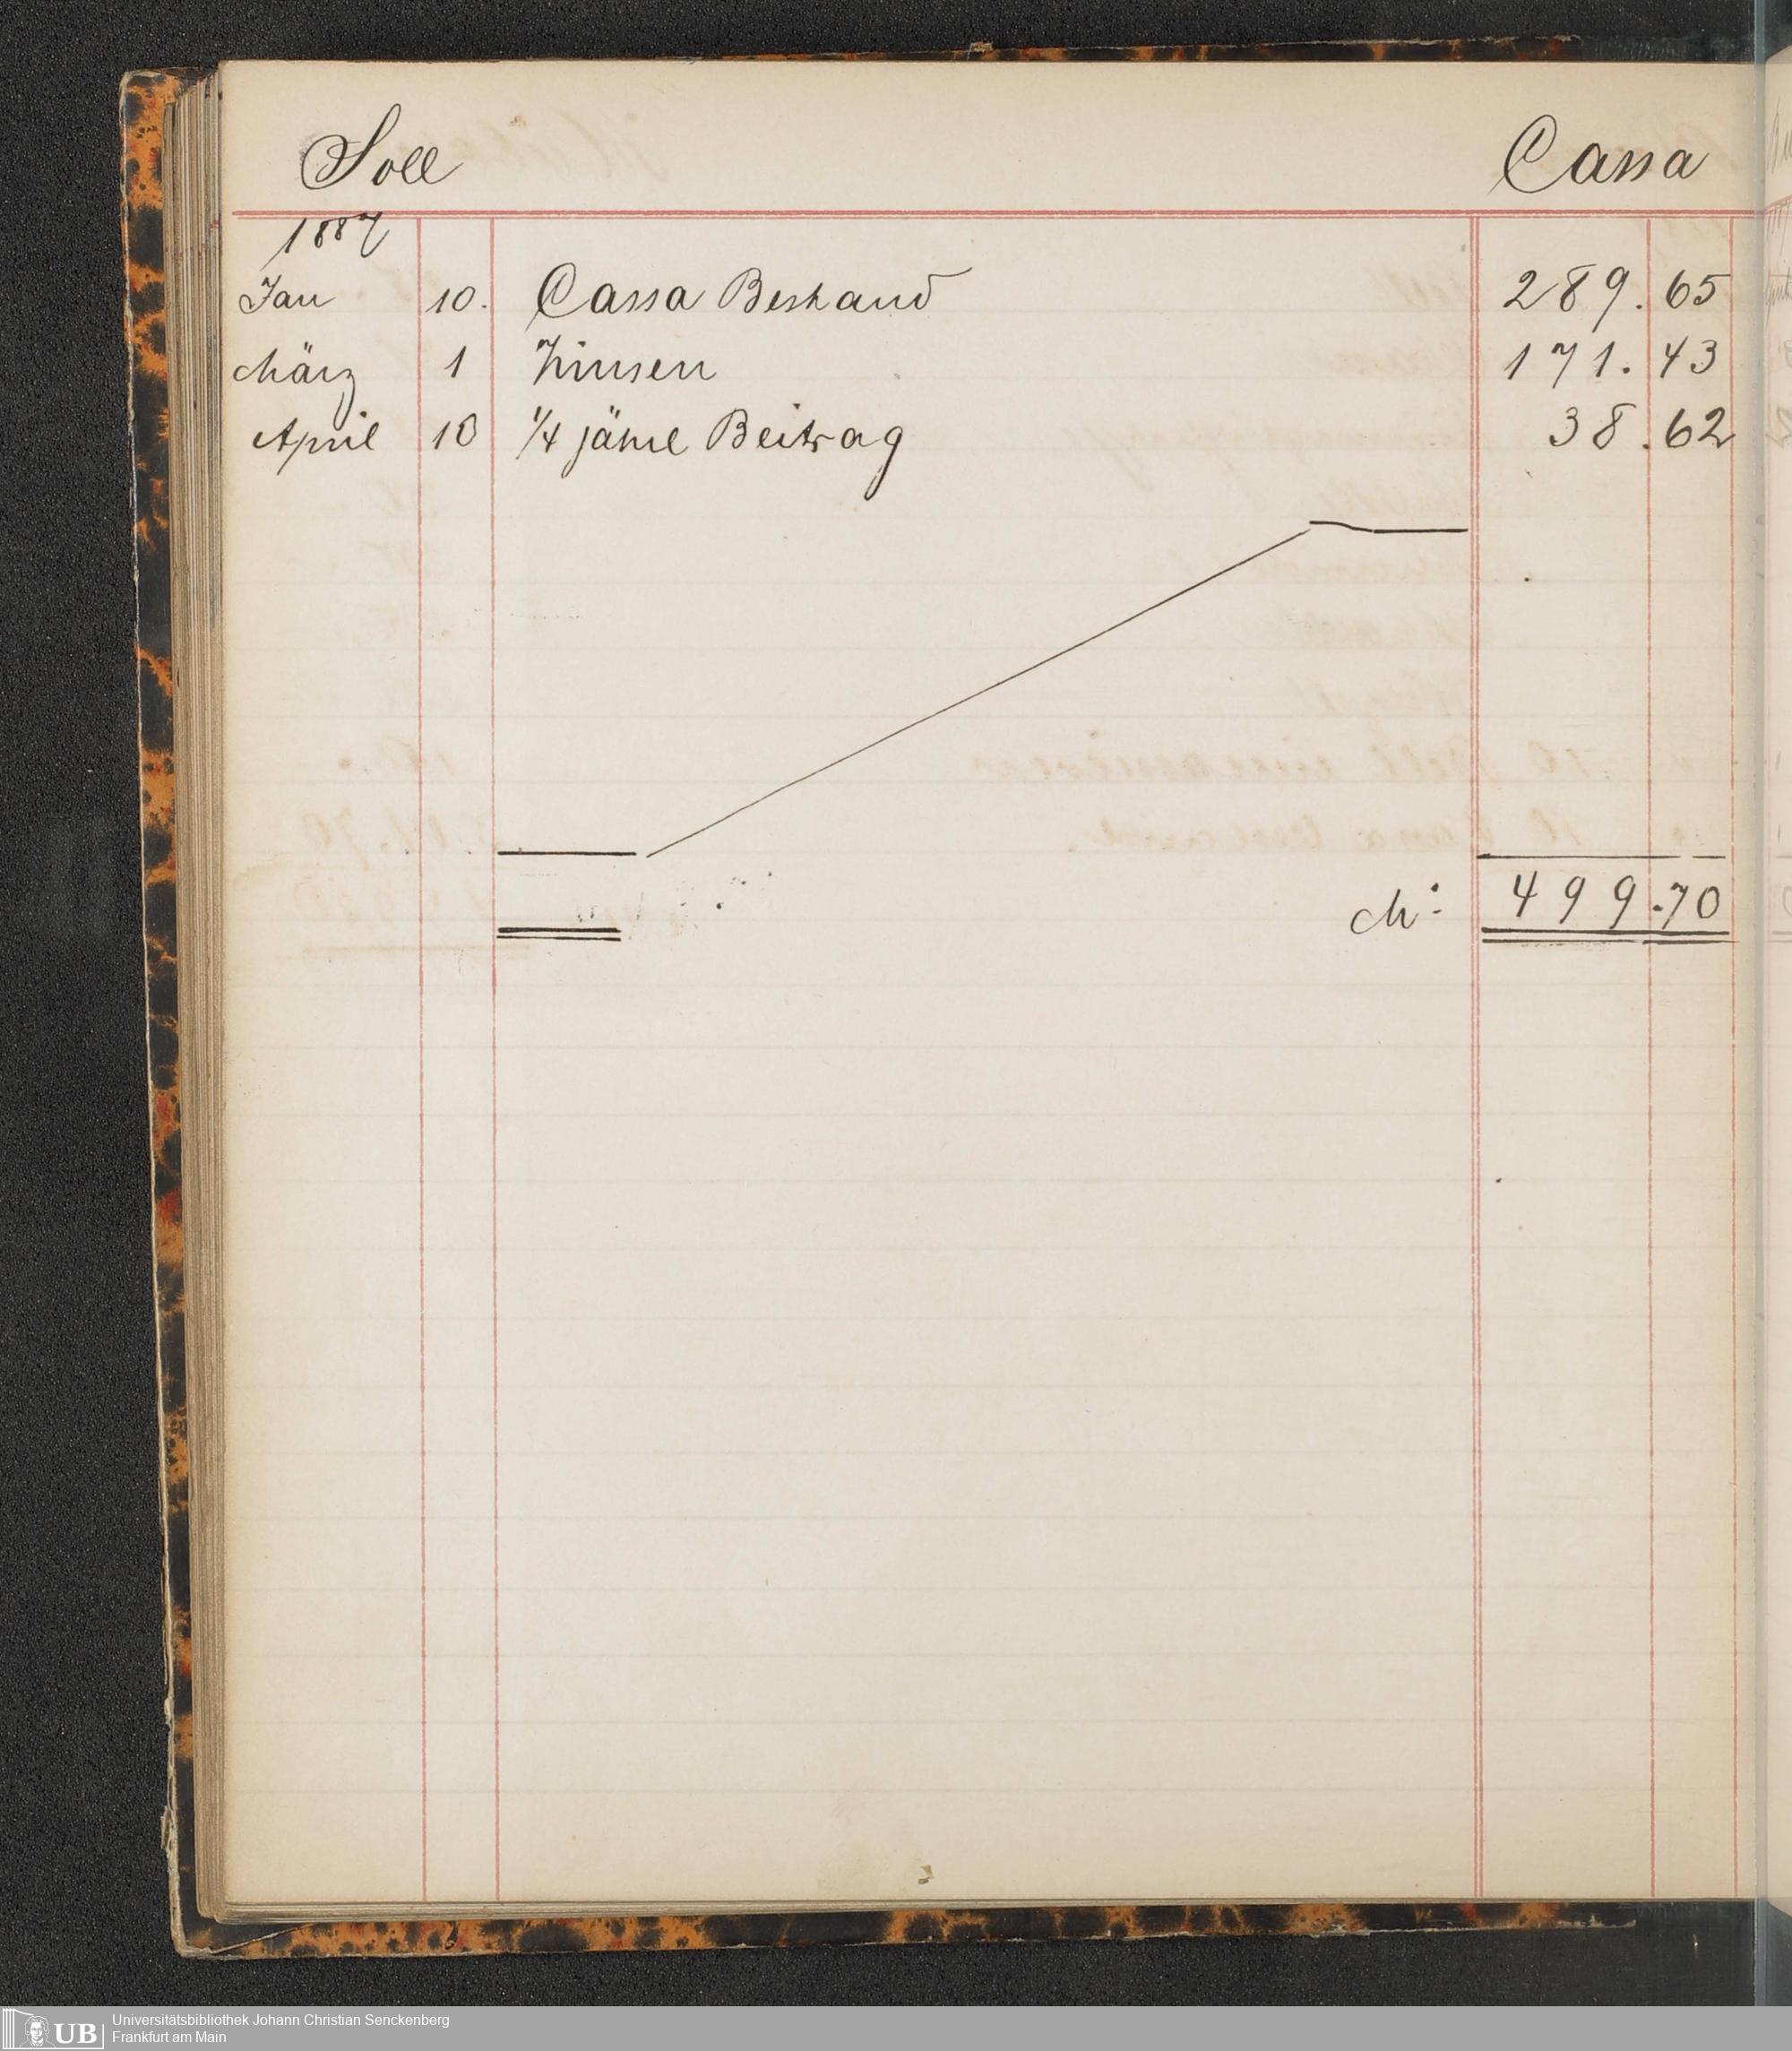 Soll Cassa
1887
Jan 10. Cassa Bestand 289.65
März 1 Zinsen 171.43
April 10 1/4 jährl Beitrag 38.62
M: 499.70
UB Universitätsbibliothek Johann Christian Senckenberg
Frankfurt am Main